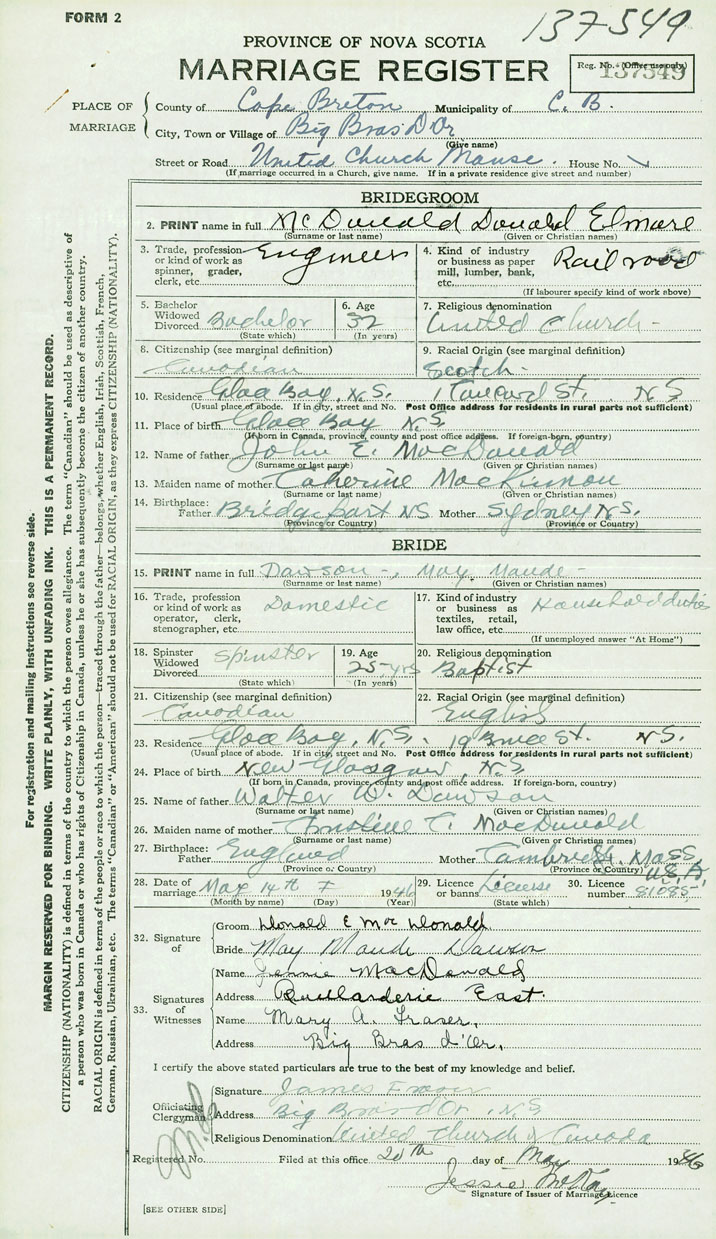 FORM 2
137549
PROVINCE OF NOVA SCOTIA
MARRIAGE REGISTER
Reg. No. (Office use only)
137549
PLACE OF MARRIAGE
County of Cape Breton Municipality of C. B.
City, Town or Village of Big Bras D'Or
(Give name)
Street or Road United Church Manse. House No.
(If marriage occurred in a Church, give name. If in a private residence give street and number)
BRIDEGROOM
2. PRINT name in full McDonald Donald Elmore
(Surname or last name) (Given or Christian names)
3. Trade, profession or kind of work as spinner, grader, clerk, etc. Engineer
4. Kind of industry or business as paper mill, lumber, bank, etc. Railroad
(If labourer specify kind of work above)
5. Bachelor Widowed Divorced Bachelor
(State which)
6. Age 32
(In years)
7. Religious denomination
United Church -
8. Citizenship (see marginal definition)
Canadian
9. Racial Origin (see marginal definition)
Scotch -
10. Residence Glace Bay, N.S. St. N S
(Usual place of abode. If in city, street and No. Post Office address for residents in rural parts not sufficient)
11. Place of birth Glace Bay N.S.
(If born in Canada, province, county and post office address. If foreign-born, country)
12. Name of father John E. MacDonald
(Surname or last name) (Given or Christian names)
13. Maiden name of mother Catherine MacKinnon
(Surname or last name) (Given or Christian names)
14. Birthplace: Father Bridgeport NS Mother Sydney N.S.
(Province or Country) (Province or Country)
BRIDE
15. PRINT name in full Dawson -, May Maude -
(Surname or last name) (Given or Christian names)
16. Trade, profession or kind of work as operator, clerk, stenographer, etc. Domestic
17. Kind of industry or business as textiles, retail, law office, etc. Household duties
(If unemployed answer "At Home")
18. Spinster Widowed Divorced Spinster
(State which)
19. Age 25 yrs
(In years)
20. Religious denomination
Baptist
21. Citizenship (see marginal definition)
Canadian
22. Racial Origin (see marginal definition)
English
23. Residence Glace Bay, N.S. 19 Bruce St. N.S.
(Usual place of abode. If in city, street and No. Post Office address for residents in rural parts not sufficient)
24. Place of birth New Glasgow, N.S
(If born in Canada, province, county and post office address. If foreign-born, country)
25. Name of father Walter W. Dawson
(Surname or last name) (Given or Christian names)
26. Maiden name of mother Christine C. MacDonald
(Surname or last name) (Given or Christian names)
27. Birthplace: Father England Mother Mass, U.S.A.
(Province or Country) (Province or Country)
28. Date of marriage May 14th 1946
(Month by name) (Day) (Year)
29. Licence or banns License
(State which)
30. Licence number 81085
32. Signature of
Groom Donald E MacDonald
Bride May Maude Dawson
33. Signatures of Witnesses
Name Jennie MacDonald
Address Boularderie East.
Name Mary A. Fraser,
Address Big Bras d'Or,
I certify the above stated particulars are true to the best of my knowledge and belief.
Officiating Clergyman
Signature James
Address Big Bras D'Or, N.S
Religious Denomination United Church of Canada
Registered No. Filed at this office 20th day of May 1946
Jessie McKay
Signature of Issuer of Marriage Licence
[SEE OTHER SIDE]
For registration and mailing instructions see reverse side.
MARGIN RESERVED FOR BINDING. WRITE PLAINLY, WITH UNFADING INK. THIS IS A PERMANENT RECORD.
CITIZENSHIP (NATIONALITY) is defined in terms of the country to which the person owes allegiance. The term "Canadian" should be used as descriptive of
a person who was born in Canada or who has rights of Citizenship in Canada, unless he or she has subsequently become the citizen of another country.
RACIAL ORIGIN is defined in terms of the people or race to which the person—traced through the father—belongs, whether English, Irish, Scottish, French,
German, Russian, Ukrainian, etc. The terms "Canadian" or "American" should not be used for RACIAL ORIGIN, as they express CITIZENSHIP (NATIONALITY).